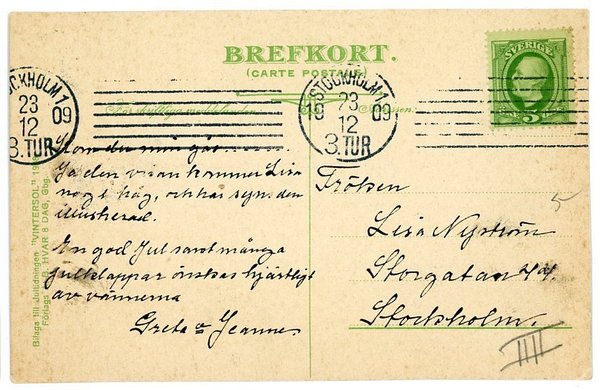 BREFKORT.
(CARTE POSTALE)
SVERIGE
5
STOCKHOLM 1
23
12
09
3. TUR
STOCKHOLM 1
19 23 09
12
3. TUR
Bilaga till Jultidningen "VINTERSOL"
Förlags HVAR 8 DAG, Gbg.
Kom du min
Ja den visan kommer Lisa
nog i håg, och här sejn. den
illustrerad.
En god Jul samt många
julklappar önskas hjärtligt
av vännerna
Greta o Jeanne.
Fröken
Lisa Nyström
Storgatan
Stockholm.
5